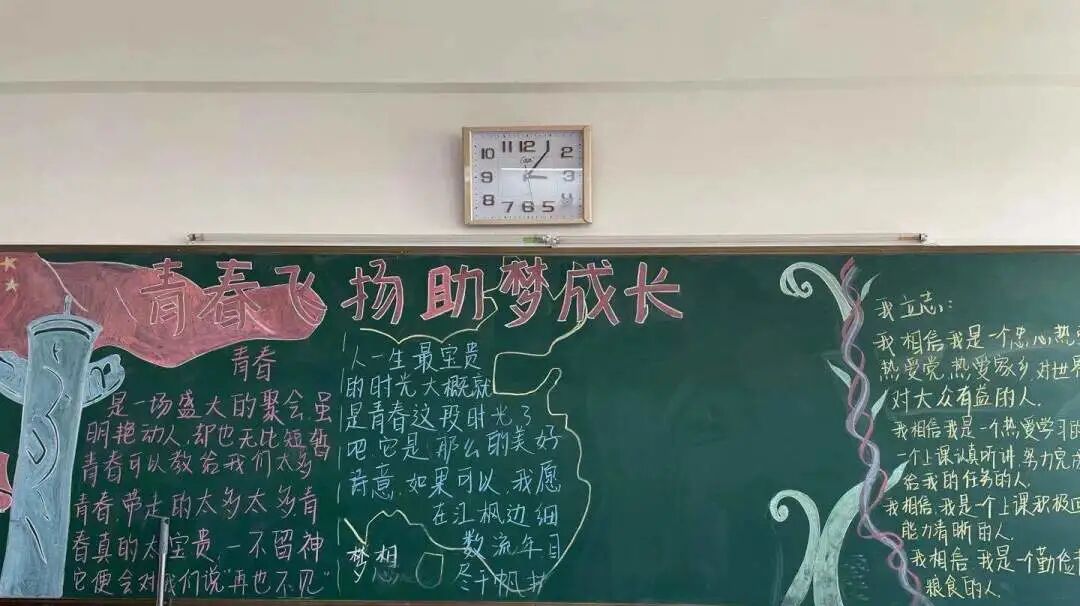 11 12
10 2
9 3
8
7 6 5
青春飞扬助梦成长
青春
是一场盛大的聚会,虽
明艳动人,却也无比短暂
青春可以教给我们太多
青春,带走的太多太多青
春真的太宝贵,一不留神
它便会对我们说"再也不见"
人一生最宝贵
的时光大概就
是青春这段时光了
吧,它是那么的美好
诗意,如果可以,我愿
在江枫边细
数流年目
冬千帆
梦想
我立志:
我相信我是一个忠心热
热爱党,热爱家乡,对世界
对大众有益的人.
我相信我是一个热爱学习的
一个上课认真听讲,努力完成
给我的任务的人.
我相信,我是一个上课积极回
能力清晰的人.
我相信我是一个勤俭
粮食的人.